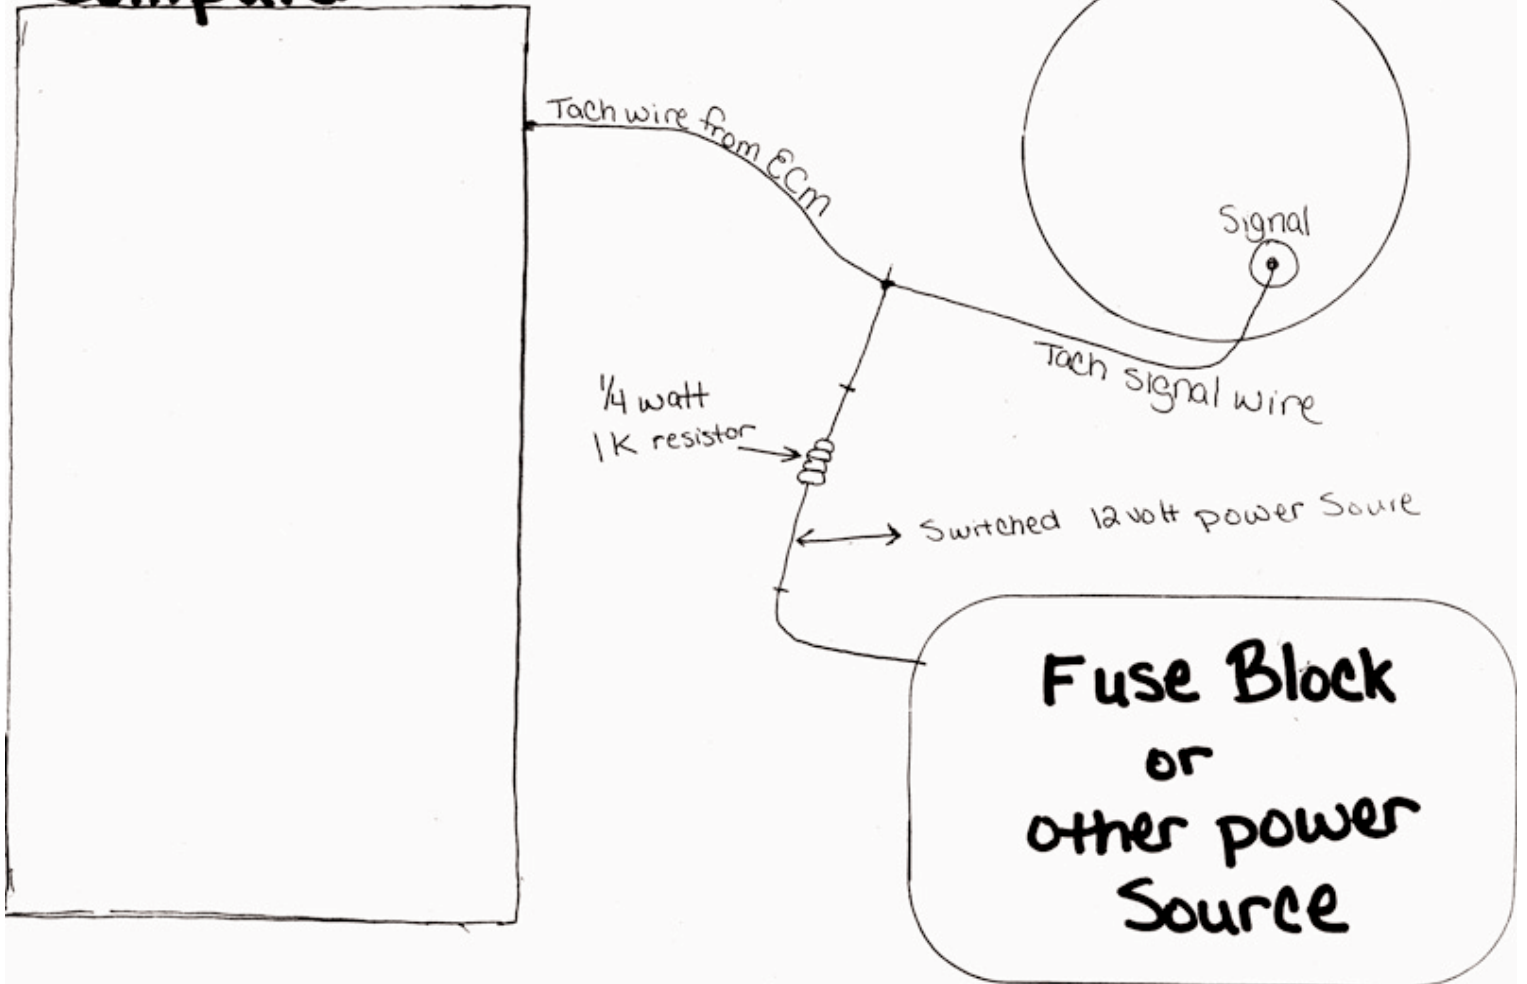 Tach wire from ECM
Signal
Tach signal wire
1/4 watt
1K resistor
Switched 12 volt power Soure
Fuse Block
or
other power
Source